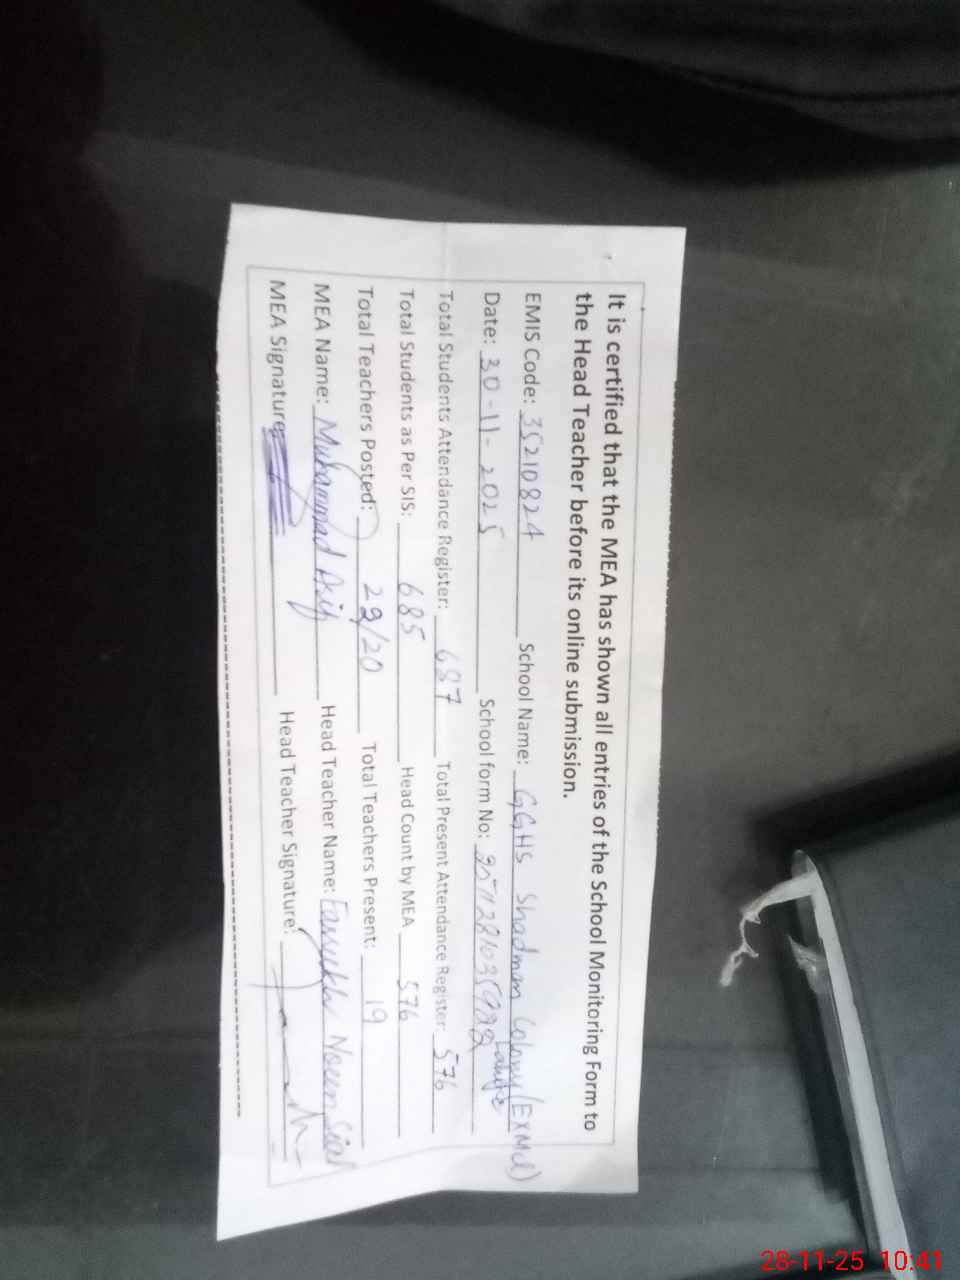 It is certified that the MEA has shown all entries of the School Monitoring Form to
the Head Teacher before its online submission.
EMIS Code: 35210824 School Name: GGHS Shadman Colony (ExMcl)
Date: 30-11-2025 School form No:
Total Students Attendance Register: 687 Total Present Attendance Register: 576
Total Students as Per SIS: 685 Head Count by MEA 576
Total Teachers Posted: /20 Total Teachers Present: 19
MEA Name: Muhammad Asif Head Teacher Name: Farrukh Sial
MEA Signature: Head Teacher Signature:
28-11-25 10:41